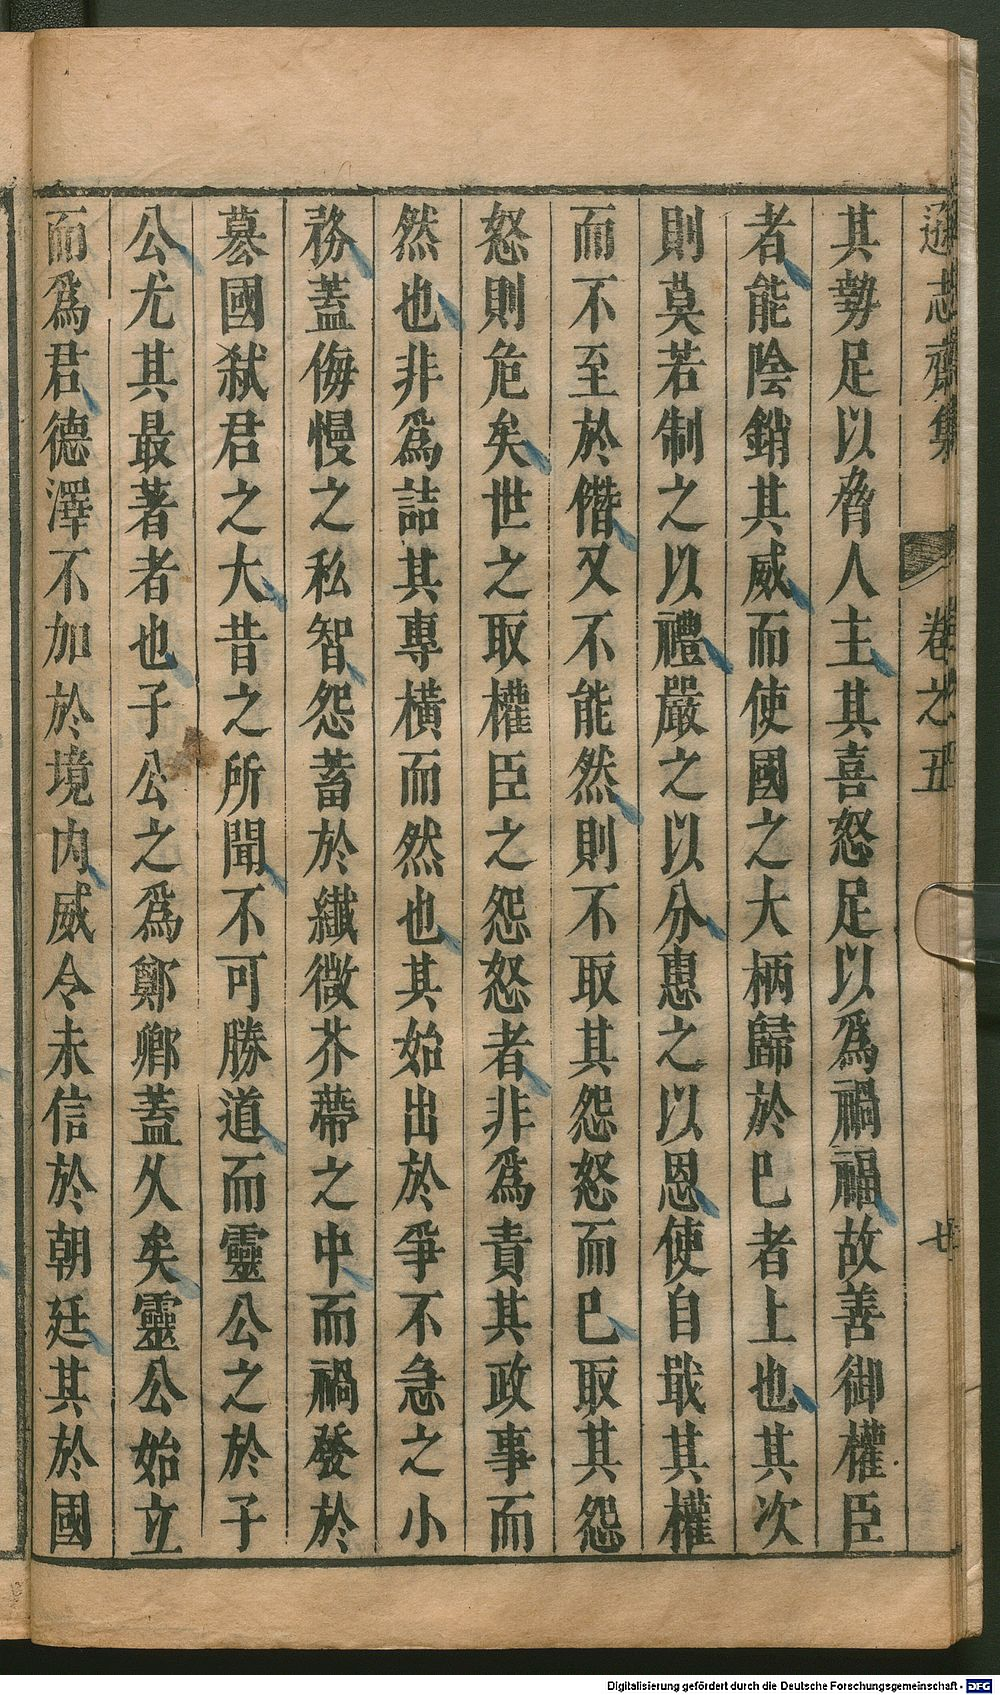 遜志齋集
卷之五
廿
其勢足以脅人主其喜怒足以爲禍福故善御權臣
者能陰銷其威而使國之大柄歸於巳者上也其次
則莫若制之以禮嚴之以分惠之以恩使自戢其權
而不至於僭又不能然則不取其怨怒而巳取其怨
怒則危矣世之取權臣之怨怒者非爲責其政事而
然也非爲詰其專橫而然也其始出於爭不急之小
務蓋侮慢之私智怨蓄於纖微芥蔕之中而禍發於
簒國弑君之大昔之所聞不可勝道而靈公之於子
公尤其最著者也子公之爲鄭卿蓋久矣靈公始立
而爲君德澤不加於境內威令未信於朝廷其於國
Digitalisierung gefördert durch die Deutsche Forschungsgemeinschaft - DFG